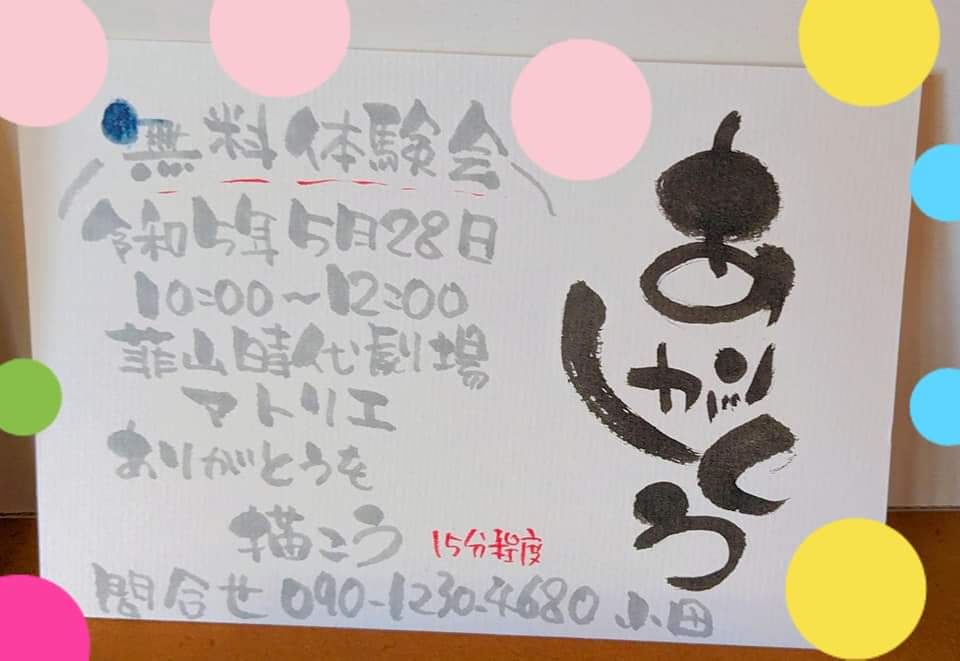 無料体験会
令和5年5月28日
10:00〜12:00
韮山時代劇場
マトリエ
ありがとうを
描こう 15分程度
問合せ 090-1230-4680 小田
ありがとう